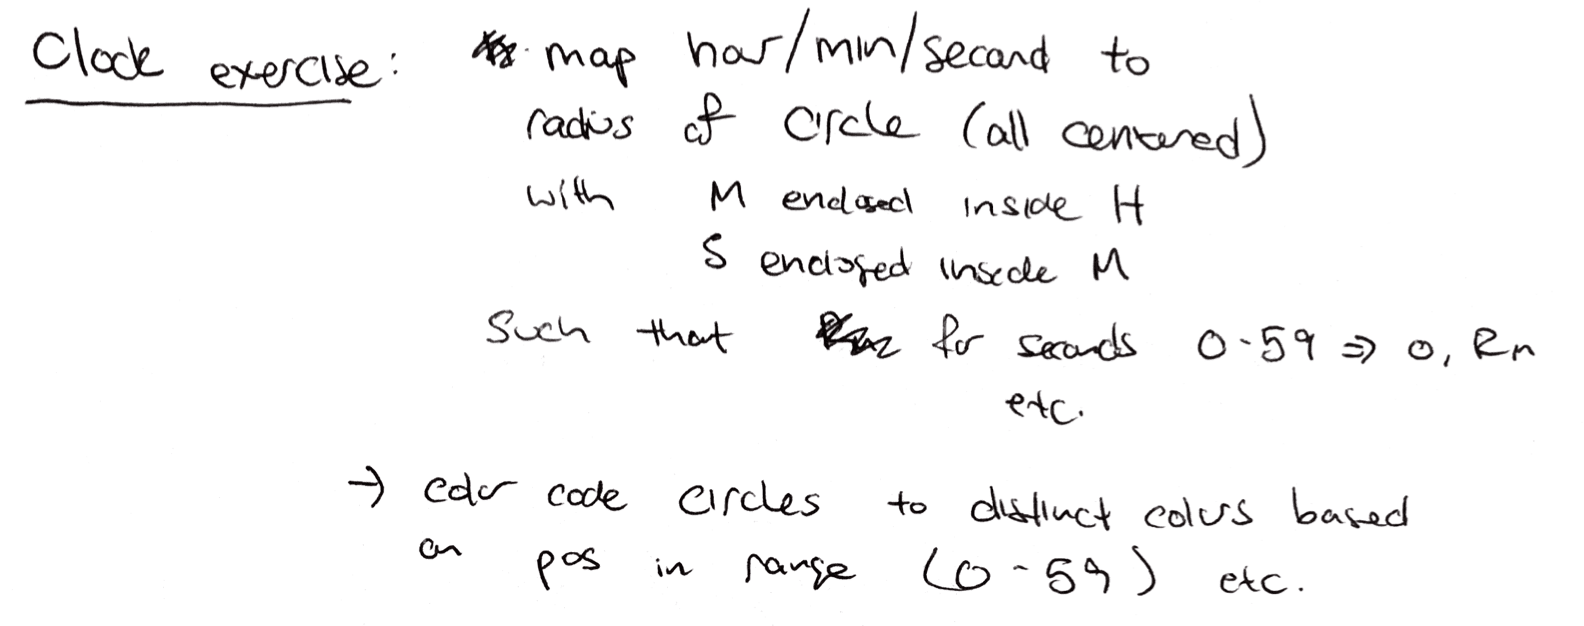 Clock exercise: map hour/min/second to
radius of circle (all centered)
with M enclosed inside H
S enclosed inside M
Such that for seconds 0-59 => 0, Rm
etc.
→ color code circles to distinct colors based
on pos in range (0-59) etc.